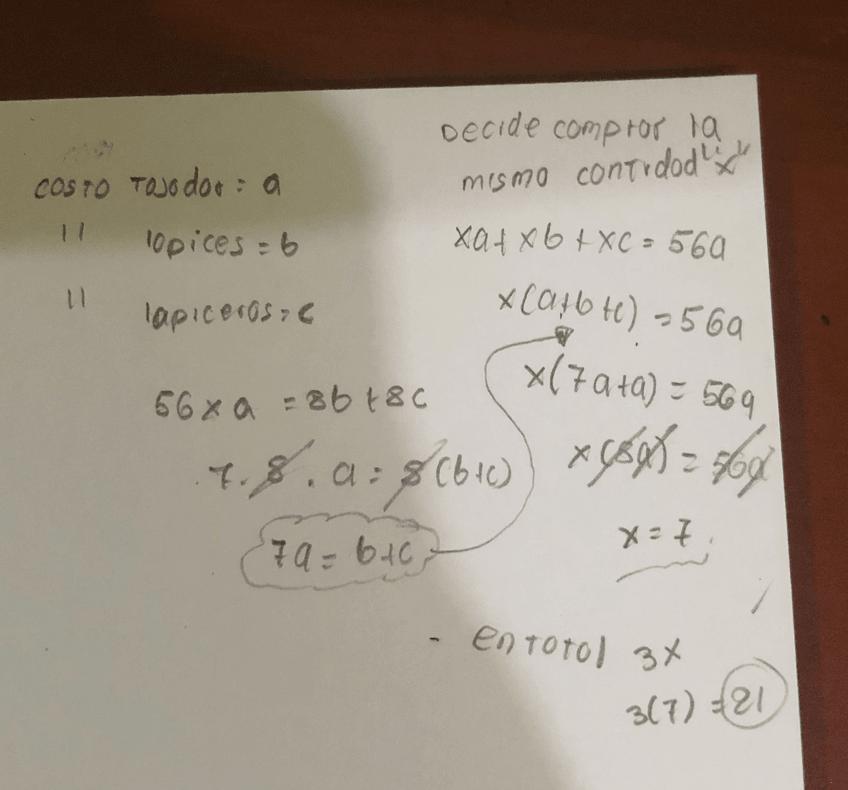 COSTO TAJADOR = a
" lapices = b
" lapiceros = c
56 x a = 8b + 8c
7 . 8 . a = 8 (b+c)
7a = b+c
DECIDE comprar la
misma cantidad "x"
xa + xb + xc = 56a
x(a+b+c) = 56a
x(7a+a) = 56a
x(8a) = 56a
x = 7
- en total 3x
3(7) = 21